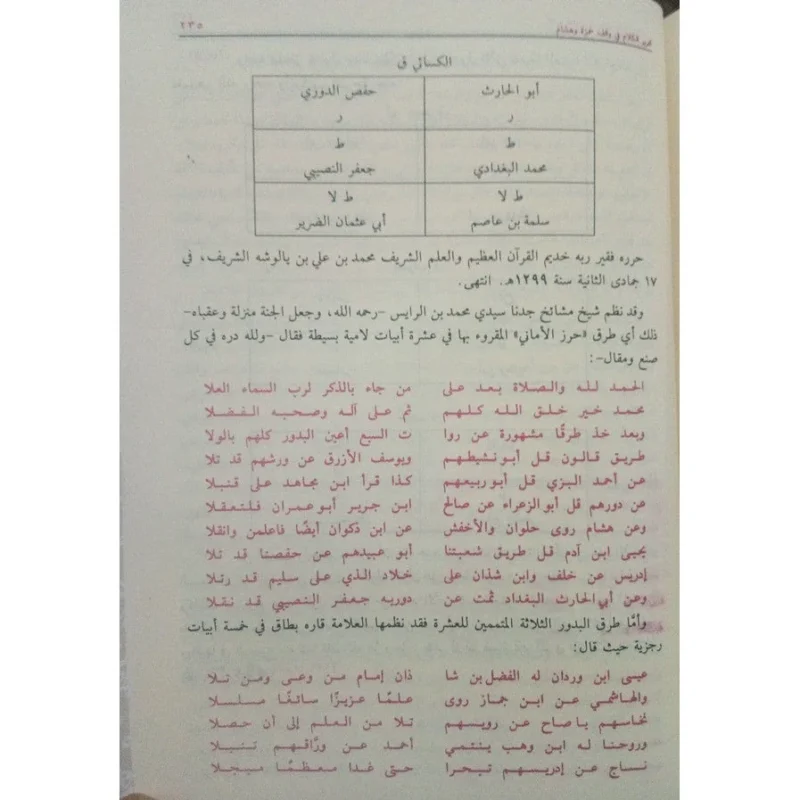 تحرير الكلام في وقف حمزة وهشام ٢٣٥
الكسائي ق
أبو الحارث حفص الدوري
ر ر
ط ط
محمد البغدادي جعفر النصيبي
ط لا ط لا
سلمة بن عاصم أبي عثمان الضرير
حرره فقير ربه خديم القرآن العظيم والعلم الشريف محمد بن علي بن يالوشه الشريف، في
١٧ جمادى الثانية سنة ١٢٩٩هـ. انتهى.
وقد نظم شيخ مشائخ جدنا سيدي محمد بن الرايس -رحمه الله، وجعل الجنة منزلة وعقباه-
ذلك أي طرق «حرز الأماني» المقروء بها في عشرة أبيات لامية بسيطة فقال -ولله دره في كل
صنع ومقال-:
الحمد لله والصلاة بعد على من جاء بالذكر لرب السماء العلا
محمد خير خلق الله كلهم ثم على آله وصحبه الفضلا
وبعد خذ طرقًا مشهورة عن روا ت السبع أعين البدور كلهم بالولا
طريق قالون قل أبو نشيطهم ويوسف الأزرق عن ورشهم قد تلا
عن أحمد البزي قل أبو ربيعهم كذا قرأ ابن مجاهد على قنبلا
عن دورهم قل أبو الزعراء عن صالح ابن جرير أبو عمران فلتعقلا
وعن هشام روى حلوان والأخفش عن ابن ذكوان أيضًا فاعلمن وانقلا
يحيى ابن آدم قل طريق شعبتنا أبو عبيدهم عن حفصنا قد تلا
إدريس عن خلف وابن شذان على خلاد الذي على سليم قد رتلا
وعن أبي الحارث البغداد ثمت عن دوربه جعفر النصيبي قد نقلا
وأمّا طرق البدور الثلاثة المتممين للعشرة فقد نظمها العلامة قاره بطاق في خمسة أبيات
رجزية حيث قال:
عيسى ابن وردان له الفضل بن شا ذان إمام من وعى ومن تلا
والهاشمي عن ابن جماز روى علمًا عزيزًا سائغًا مسلسلا
نخاسهم يا صاح عن رويسهم تلا من العلم إلى أن حصلا
وروحنا له ابن وهب ينتمي أحمد عن ورّاقهم تنبلا
نساج عن إدريسهم تبحرا حتى غدا معظمًا مبجلا